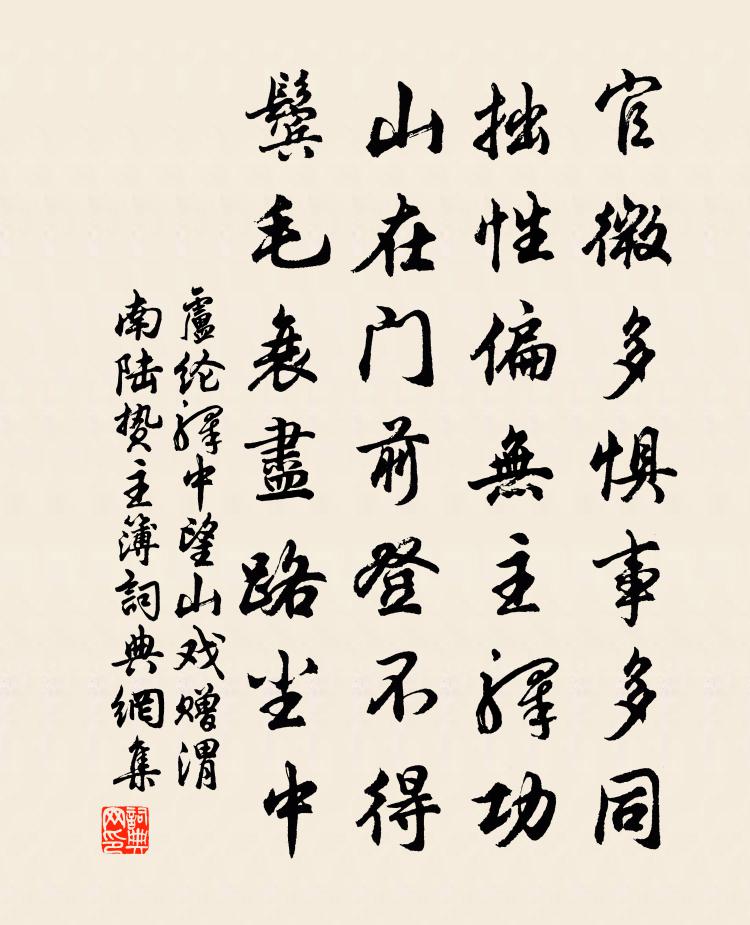 官微多惧事多同
拙性偏無主驛功
山在门前登不得
鬓毛衰盡路尘中
盧纶驛中望山戏赠渭
南陆贽主簿詞典網集
詞典网印